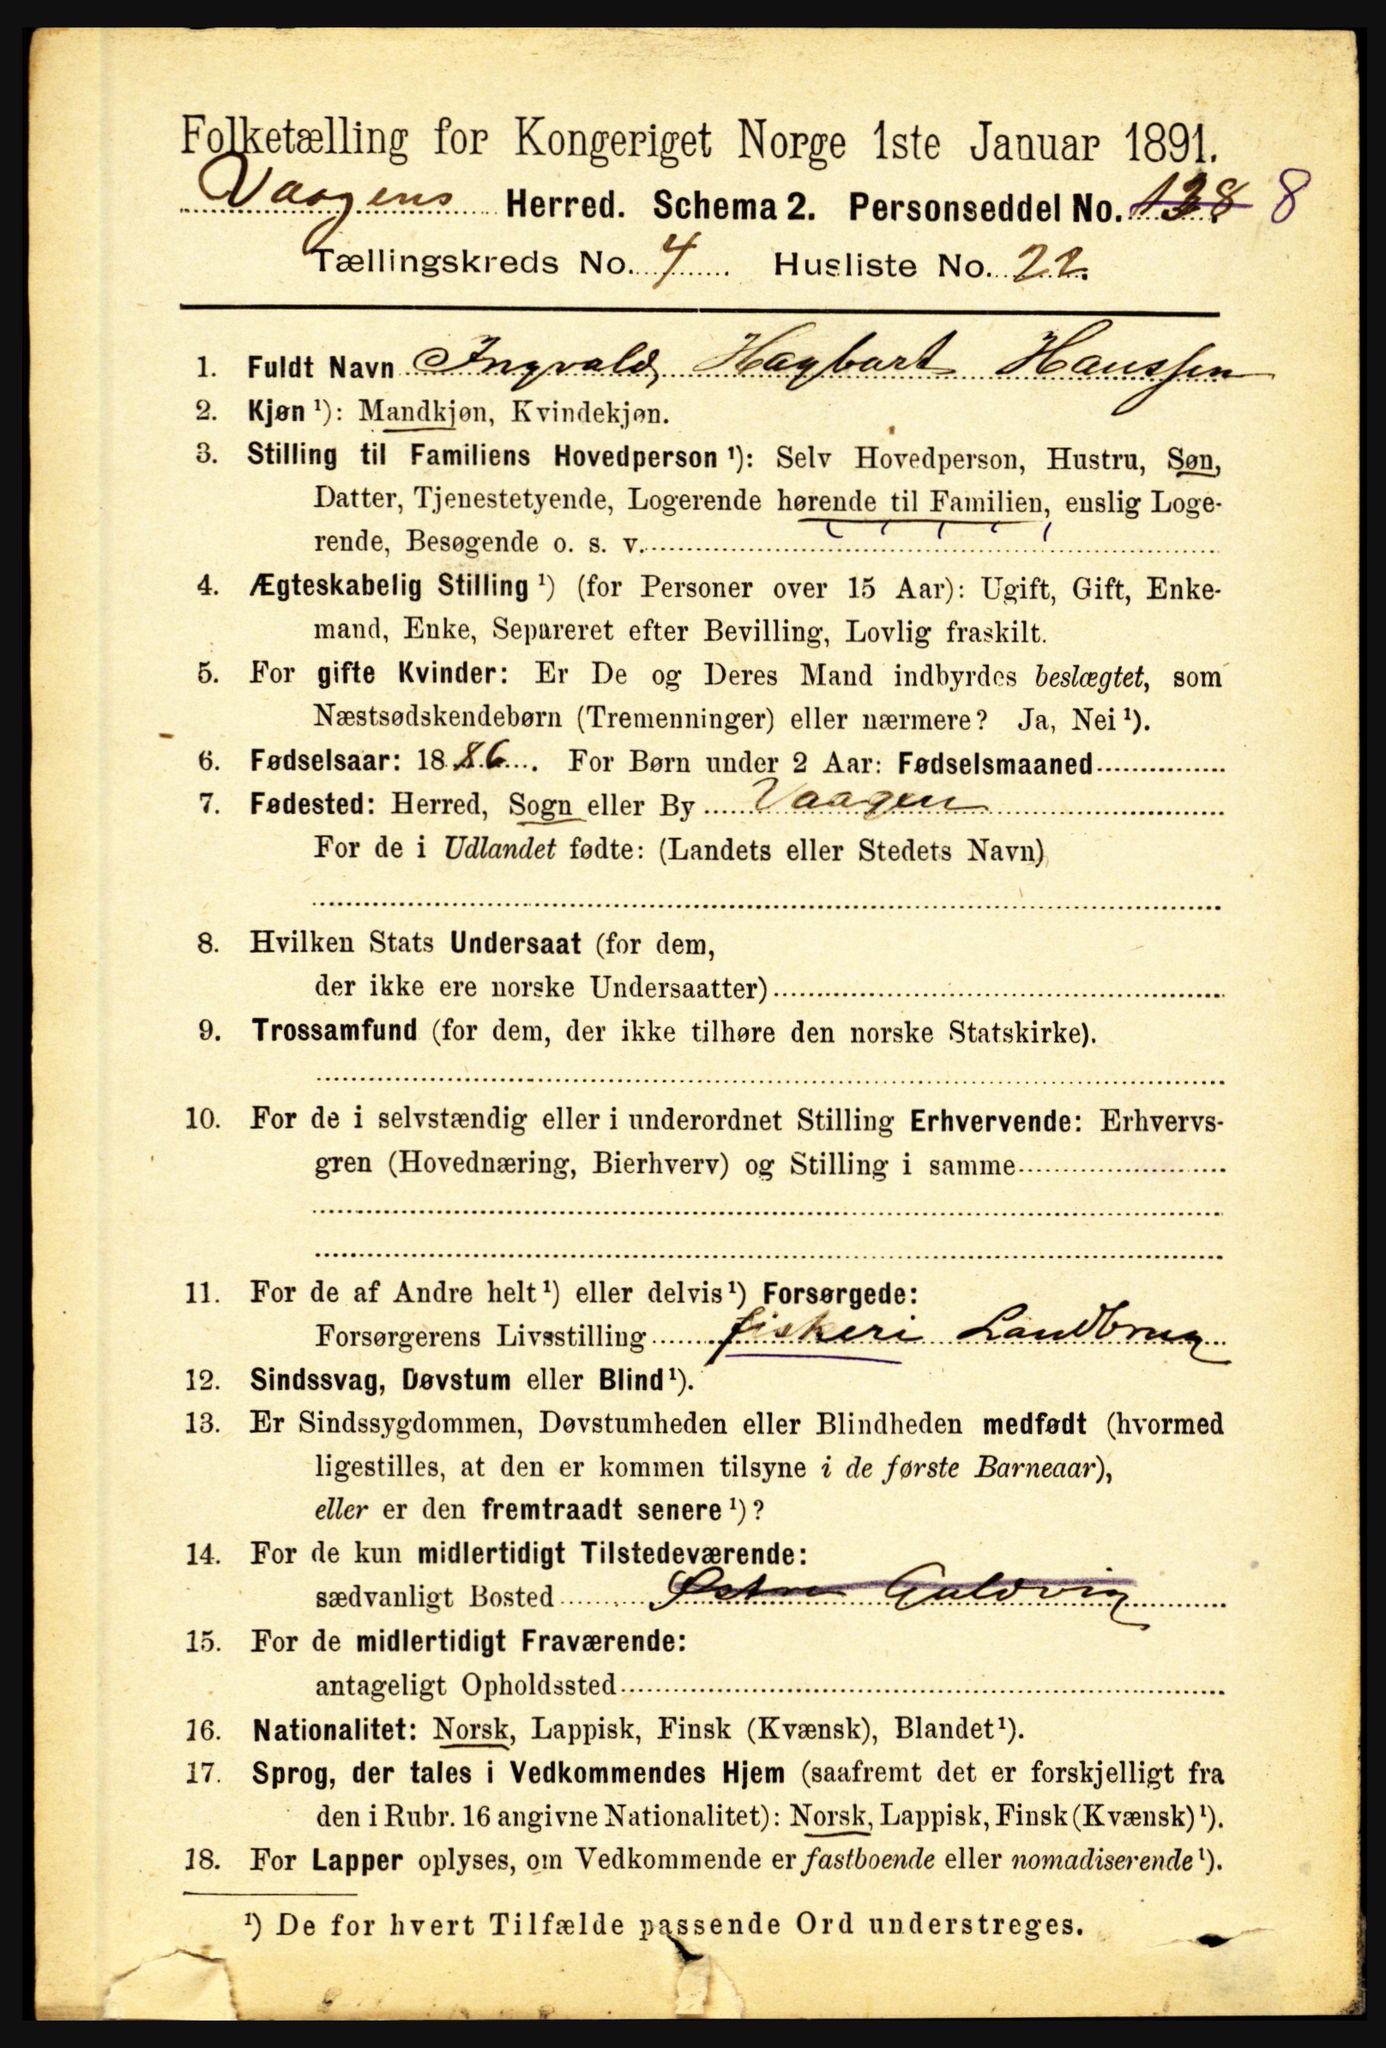 Folketælling for Kongeriget Norge 1ste Januar 1891.
Vaagens Herred. Schema 2. Personseddel No. 138 8
Tællingskreds No. 4 Husliste No. 22.
1. Fuldt Navn Ingvald Hagbart Hanssen
2. Kjøn ¹): Mandkjøn, Kvindekjøn.
3. Stilling til Familiens Hovedperson ¹): Selv Hovedperson, Hustru, Søn,
Datter, Tjenestetyende, Logerende hørende til Familien, enslig Loge-
rende, Besøgende o. s. v.
4. Ægteskabelig Stilling ¹) (for Personer over 15 Aar): Ugift, Gift, Enke-
mand, Enke, Separeret efter Bevilling, Lovlig fraskilt.
5. For gifte Kvinder: Er De og Deres Mand indbyrdes beslægtet, som
Næstsødskendebørn (Tremenninger) eller nærmere? Ja, Nei ¹).
6. Fødselsaar: 1886. For Børn under 2 Aar: Fødselsmaaned
7. Fødested: Herred, Sogn eller By Vaagen
For de i Udlandet fødte: (Landets eller Stedets Navn)
8. Hvilken Stats Undersaat (for dem,
der ikke ere norske Undersaatter)
9. Trossamfund (for dem, der ikke tilhøre den norske Statskirke).
10. For de i selvstændig eller i underordnet Stilling Erhvervende: Erhvervs-
gren (Hovednæring, Bierhverv) og Stilling i samme
11. For de af Andre helt ¹) eller delvis ¹) Forsørgede:
Forsørgerens Livsstilling fiskeri Landbrug
12. Sindssvag, Døvstum eller Blind ¹).
13. Er Sindssygdommen, Døvstumheden eller Blindheden medfødt (hvormed
ligestilles, at den er kommen tilsyne i de første Barneaar),
eller er den fremtraadt senere ¹)?
14. For de kun midlertidigt Tilstedeværende:
sædvanligt Bosted Østre Guldvig
15. For de midlertidigt Fraværende:
antageligt Opholdssted
16. Nationalitet: Norsk, Lappisk, Finsk (Kvænsk), Blandet ¹).
17. Sprog, der tales i Vedkommendes Hjem (saafremt det er forskjelligt fra
den i Rubr. 16 angivne Nationalitet): Norsk, Lappisk, Finsk (Kvænsk) ¹).
18. For Lapper oplyses, om Vedkommende er fastboende eller nomadiserende ¹).
¹) De for hvert Tilfælde passende Ord understreges.